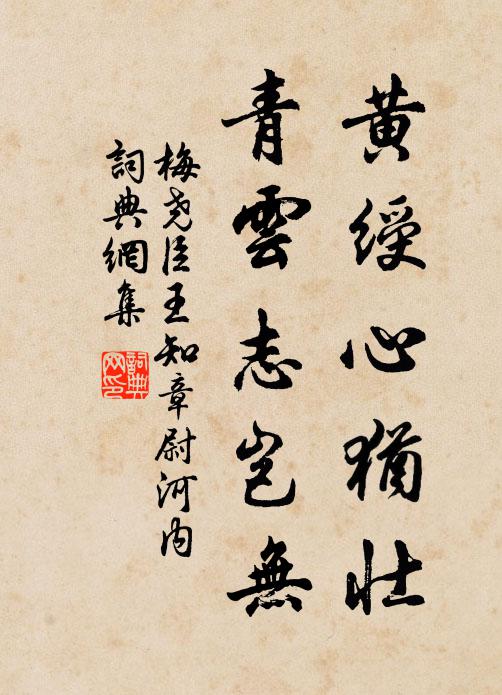 黄綬心猶壯
青雲志豈無
梅尧臣王知章尉河内
詞典網集
詞典网印